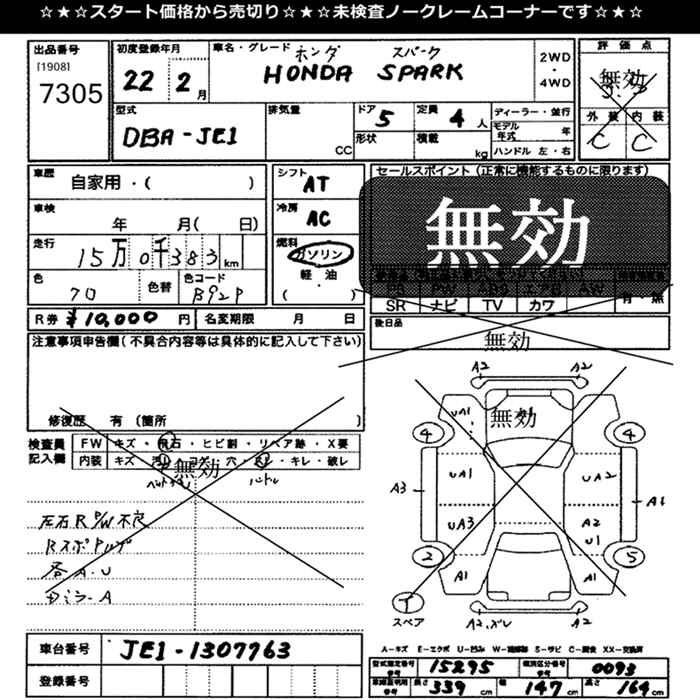 ☆★☆★スタート価格から売切り☆★☆★未検査ノークレームコーナーです☆★☆
出品番号
[1908]
7305
初度登録年月
22 2月
車名・グレード ホンダ スパーク
HONDA SPARK
2WD
・
4WD
評価点
無効
外装 内装
C C
型式
DBA-JE1
排気量
CC
ドア 5
定員 4人
形状
積載 kg
ディーラー・並行
モデル年式 年
ハンドル 左・右
車歴
自家用・( )
シフト
AT
車検
年 月( 日)
冷房
AC
走行
15万0千383km
燃料
ガソリン
軽・油
( )
色
70
色替
色コード
B92P
セールスポイント(正常に機能するものに限ります)
無効
SR ナビ TV カワ
有・無
R券 ¥10,000円
名変期限 月 日
後日品
無効
注意事項申告欄(不具合内容等は具体的に記入して下さい)
修復歴 有 (箇所 )
検査員
記入欄
FW キズ・飛石・ヒビ割・リペア跡・X要
内装 キズ・コゲ・穴・キレ・破レ
無効
左右R P/W不良
各A.U
車台番号 JE1-1307763
登録番号
A2 A2
UA1
無効
4 4
UA1 UA2
A3 A1
UA3 A2
U1
2 5
A1 A1
T
スペア
A2.ズレ A2
A-キズ E-エクボ U-凹み W-補修跡 S-サビ C-腐食 XX-交換済
型式指定番号 15295
類別区分番号 0093
長さ 339cm
幅 147cm
高さ 164cm